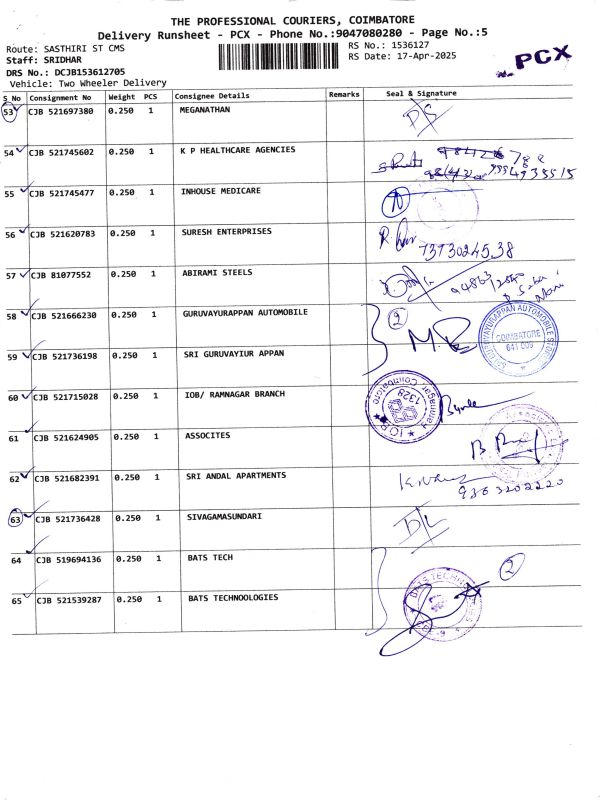 THE PROFESSIONAL COURIERS, COIMBATORE
Delivery Runsheet - PCX - Phone No.:9047080280 - Page No.:5
Route: SASTHIRI ST CMS
RS No.: 1536127
Staff: SRIDHAR
RS Date: 17-Apr-2025
PCX
DRS No.: DCJB153612705
Vehicle: Two Wheeler Delivery
S No Consignment No Weight PCS Consignee Details Remarks Seal & Signature
53 CJB 521697380 0.250 1 MEGANATHAN
54 CJB 521745602 0.250 1 K P HEALTHCARE AGENCIES
55 CJB 521745477 0.250 1 INHOUSE MEDICARE
56 CJB 521620783 0.250 1 SURESH ENTERPRISES
57 CJB 81077552 0.250 1 ABIRAMI STEELS
58 CJB 521666230 0.250 1 GURUVAYURAPPAN AUTOMOBILE 2
COIMBATORE
59 CJB 521736198 0.250 1 SRI GURUVAYIUR APPAN
60 CJB 521715028 0.250 1 IOB/ RAMNAGAR BRANCH
1328
61 CJB 521624905 0.250 1 ASSOCITES
62 CJB 521682391 0.250 1 SRI ANDAL APARTMENTS
9363202220
63 CJB 521736428 0.250 1 SIVAGAMASUNDARI
D/L
64 CJB 519694136 0.250 1 BATS TECH 2
65 CJB 521539287 0.250 1 BATS TECHNOOLOGIES